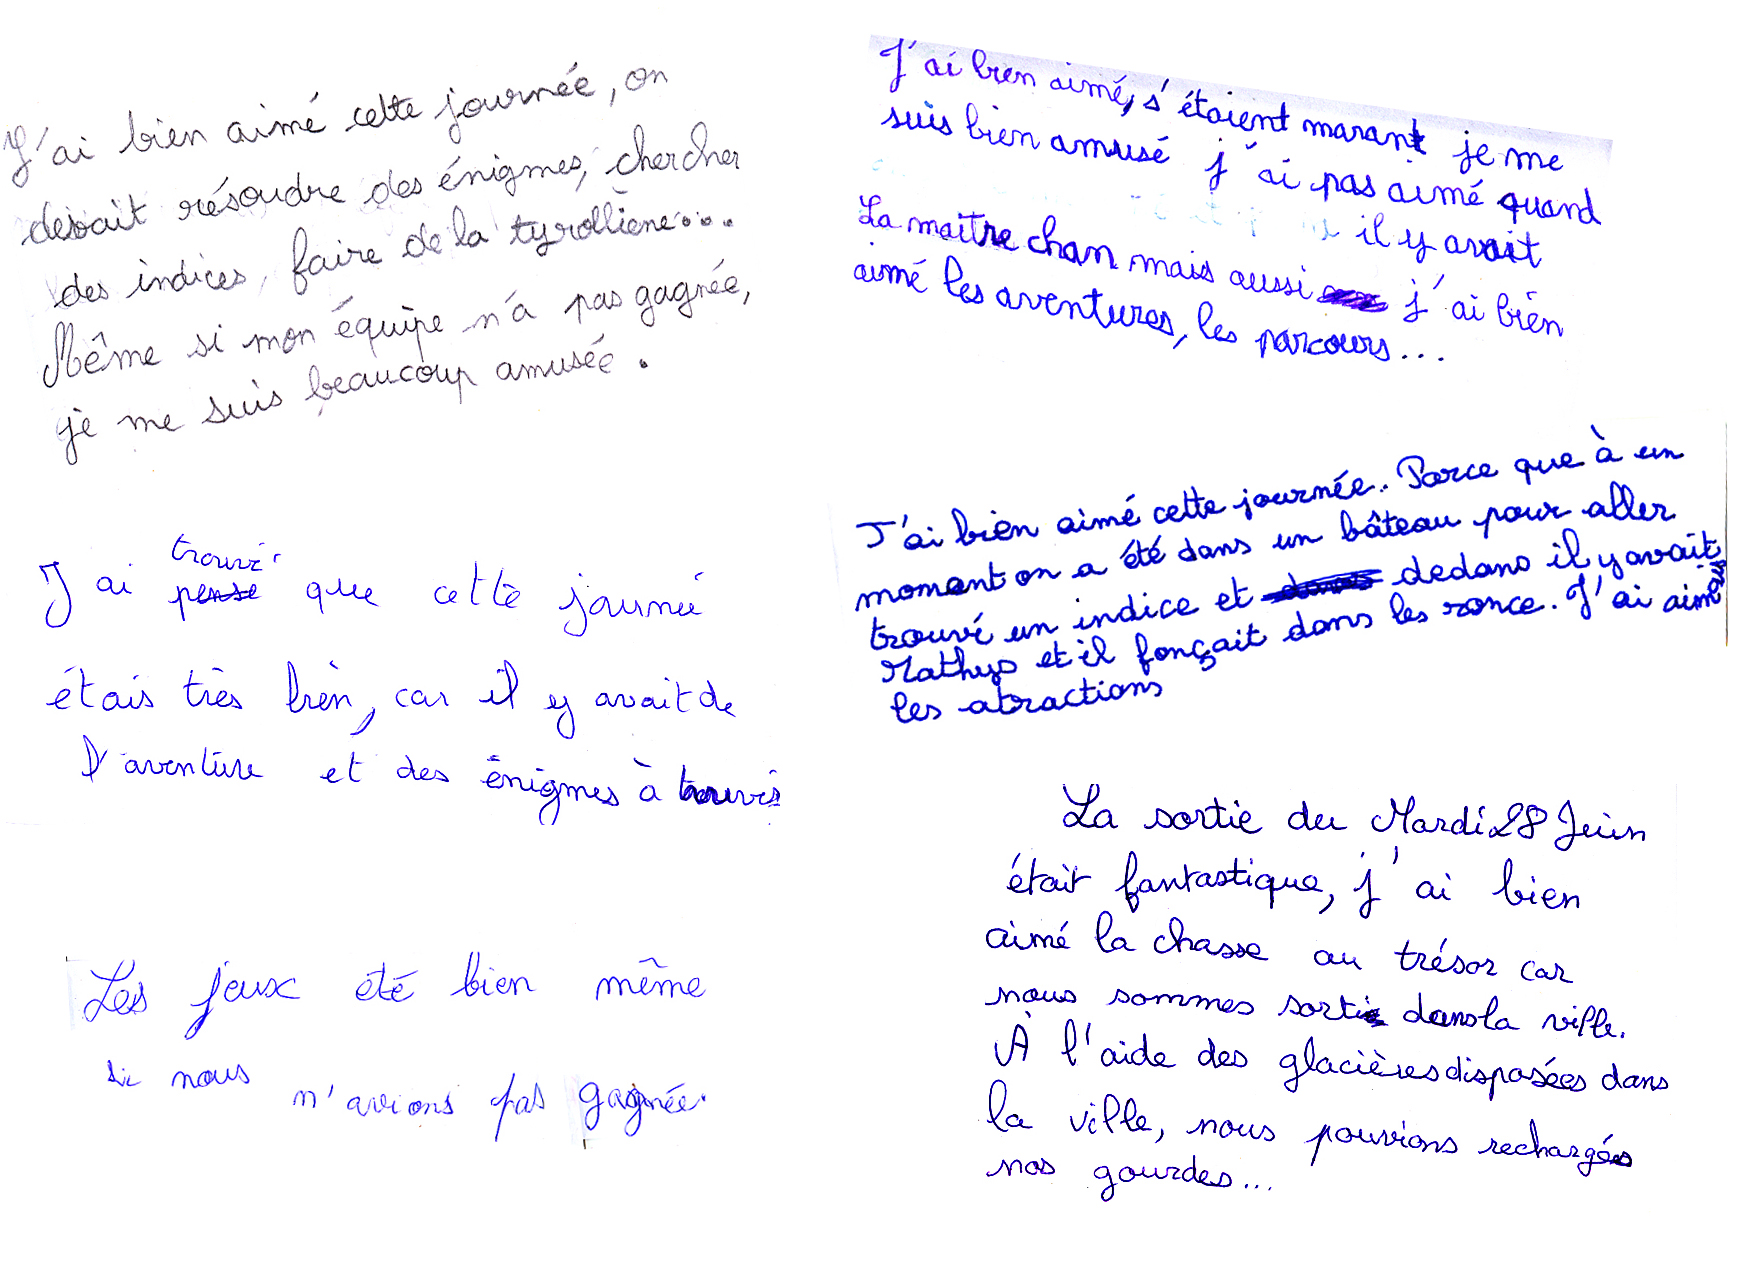 J'ai bien aimé cette journée, on
devait résoudre des énigmes, chercher
des indices, faire de la tyrolliène....
Même si mon équipe n'a pas gagnée,
je me suis beaucoup amusée.
J'ai bien aimé, s'étaient marant je me
suis bien amusé j'ai pas aimé quand
il y avait
La maitre chan mais aussi j'ai bien
aimé les aventures, les parcours...
J'ai trouvé que cette journé
étais très bien, car il y avait de
l'aventure et des énigmes à
J'ai bien aimé cette journée. Parce que à un
moment on a été dans un bâteau pour aller
trouvé un indice et dedans il y avait
Mathys et il fonçait dans les ronce. J'ai aimé
les atractions
Les jeux été bien même
si nous n'avions pas gagnée.
La sortie du Mardi 28 Juin
était fantastique, j'ai bien
aimé la chasse au trésor car
nous sommes sortis dans la ville.
À l'aide des glacières disposées dans
la ville, nous pouvions rechargés
nos gourdes...